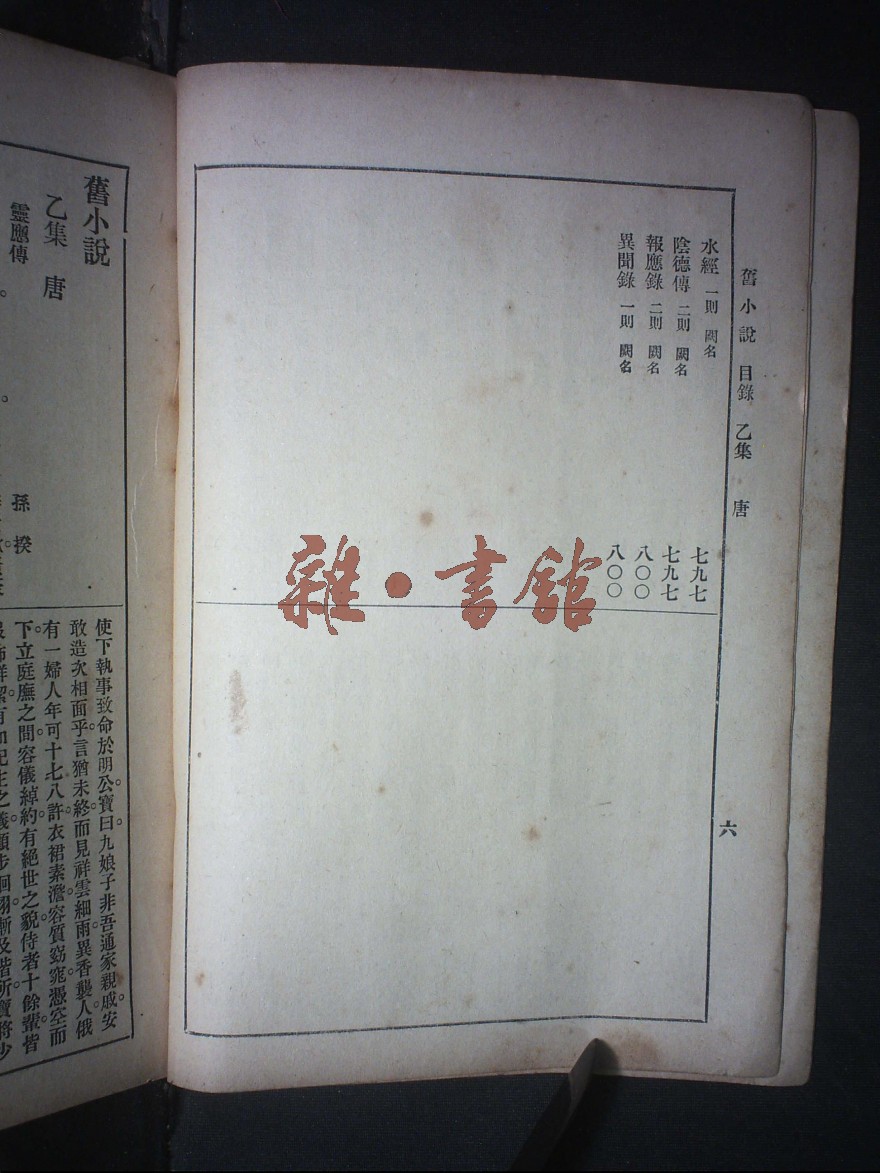 舊小說 目錄 乙集 唐
六
水經 一則 闕名 七九七
陰德傳 二則 闕名 七九七
報應錄 二則 闕名 八〇〇
異聞錄 一則 闕名 八〇〇
雜·書館
舊小說
乙集 唐
靈應傳
孫揆
使下執事致命於明公。寶曰。九娘子非吾通家親戚。安
敢造次相面乎。言猶未終。而見祥雲細雨異香襲人。俄
有一婦人年可十七八許。衣裙素澹。容質窈窕。憑空而
下。立庭廡之間。容儀綽約。有絕世之貌。侍者十餘輩。皆